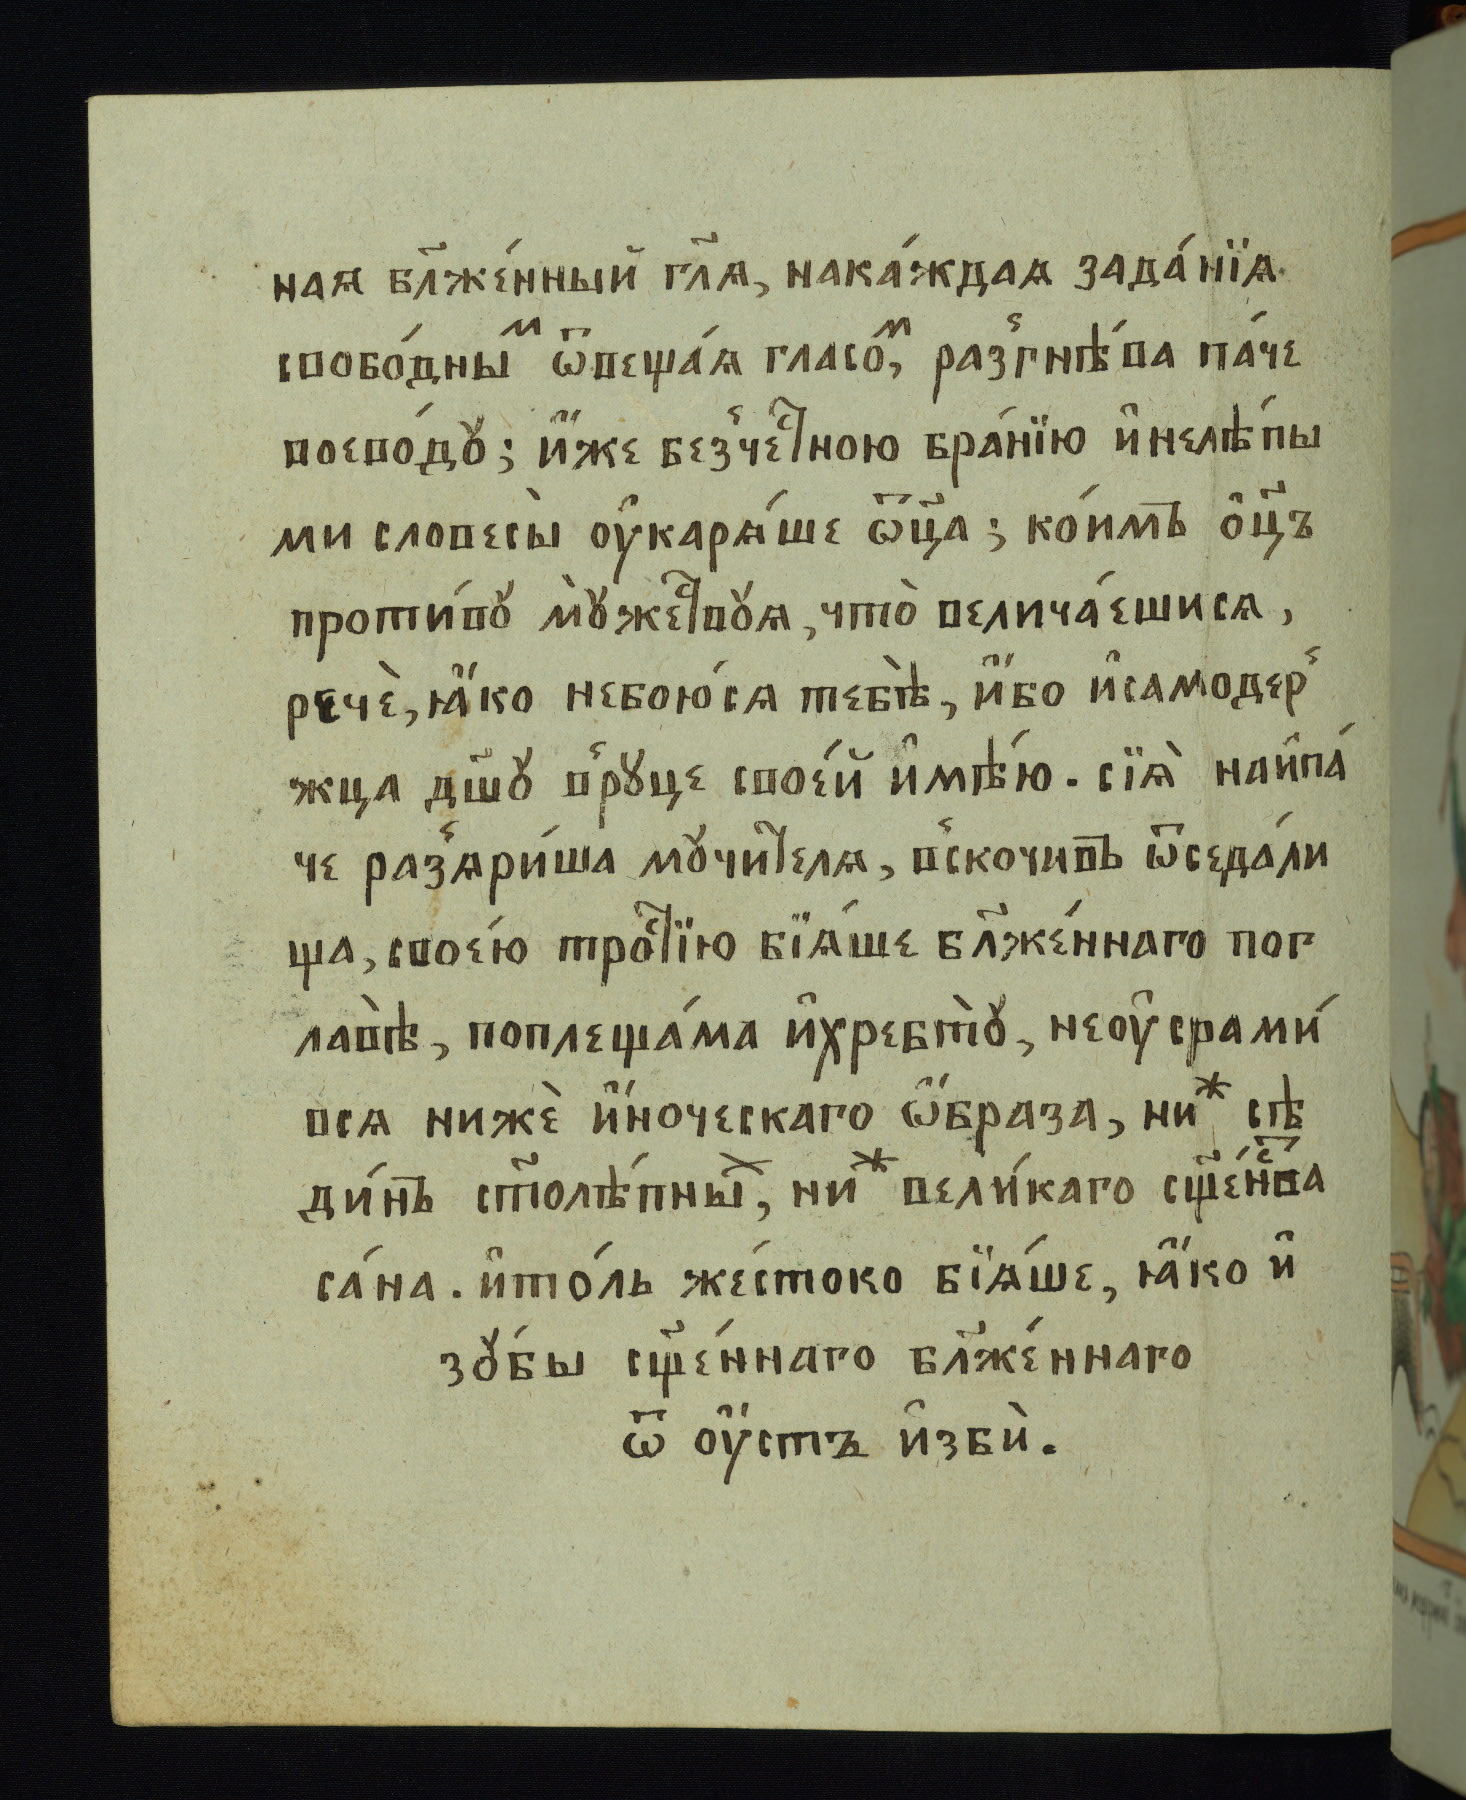 наѧ бл҃же́нный гл҃ѧ, нака́ждаѧ зада́нїѧ
свобо́дныⷨ ѿвеща́ѧ гласо́ⷨ, раз̾гнѣ́ва па́че
воево́дꙋ; и҆́же без̾че́ⷭ҇тною бра́нїю и҆нелѣ́пы
ми словесы̀ ᲂу҆карѧ́ше ѻ҆ц҃а; ко́имъ ѻ҆ц҃ъ
проти́вꙋ мꙋ̀же́ⷭ҇твꙋѧ, что̀ велича́ешисѧ,
речѐ, ꙗ҆́ко небою́сѧ тебѣ̀, и҆́бо и҆самодер̾
жца дш҃ꙋ в̾рꙋце свое́й и҆мѣ́ю. сїѧ̀ наи҆па́
че раз̾ѧри́ша мꙋчи́тⷭелѧ, в̾скочивъ ѿседа́ли
ща, свое́ю тро́ⷭ҇тїю бїѧ́ше бл҃же́ннаго пог
лавѣ̀, поплеща́ма и҆хребтꙋ̀, неᲂу҆срами́
всѧ нижѐ и҆́ноческаго ѡ҆́браза, ниⷤ сѣ
ди́нъ ст҃олѣ́пныⷯ, ниⷤ вели́каго сщ҃е́нⷭ҇тва
са́на. и҆то́ль же́стоко бїѧ́ше, ꙗ҆́ко и҆
зꙋ́бы сщ҃е́ннаго бл҃же́ннаго
ѿ ᲂу҆́стъ и҆збѝ.